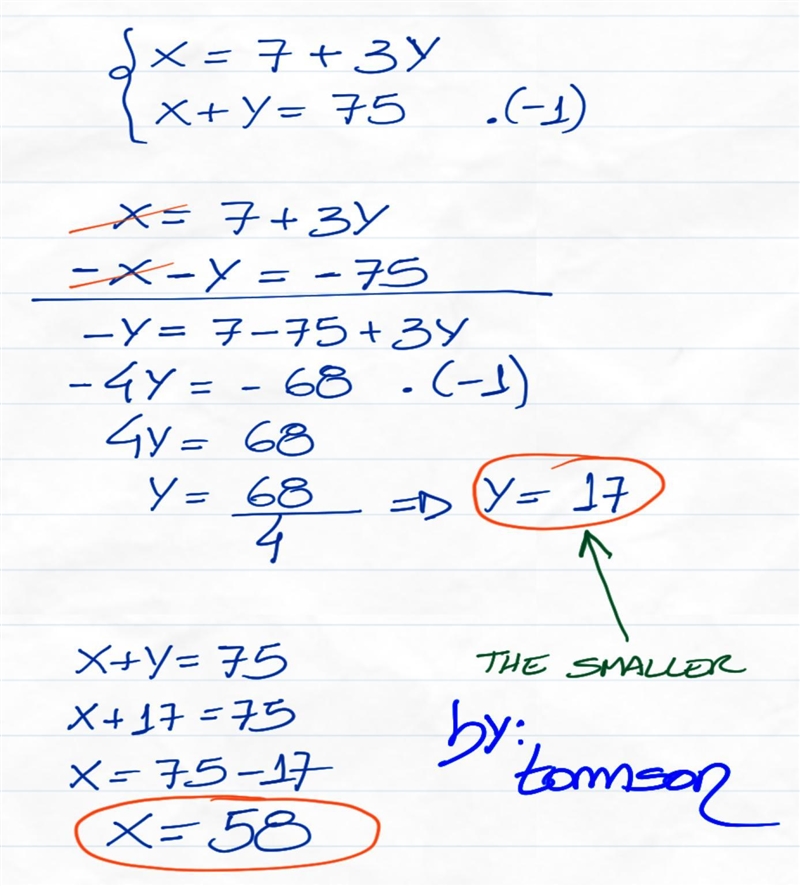 x = 7 + 3y
x + y = 75 .(-1)
x = 7 + 3y
-x - y = - 75
-y = 7 - 75 + 3y
-4y = - 68 . (-1)
4y = 68
y = 68/4 => y = 17
THE SMALLER
x + y = 75
x + 17 = 75
x = 75 - 17
x = 58
by:
tomnson